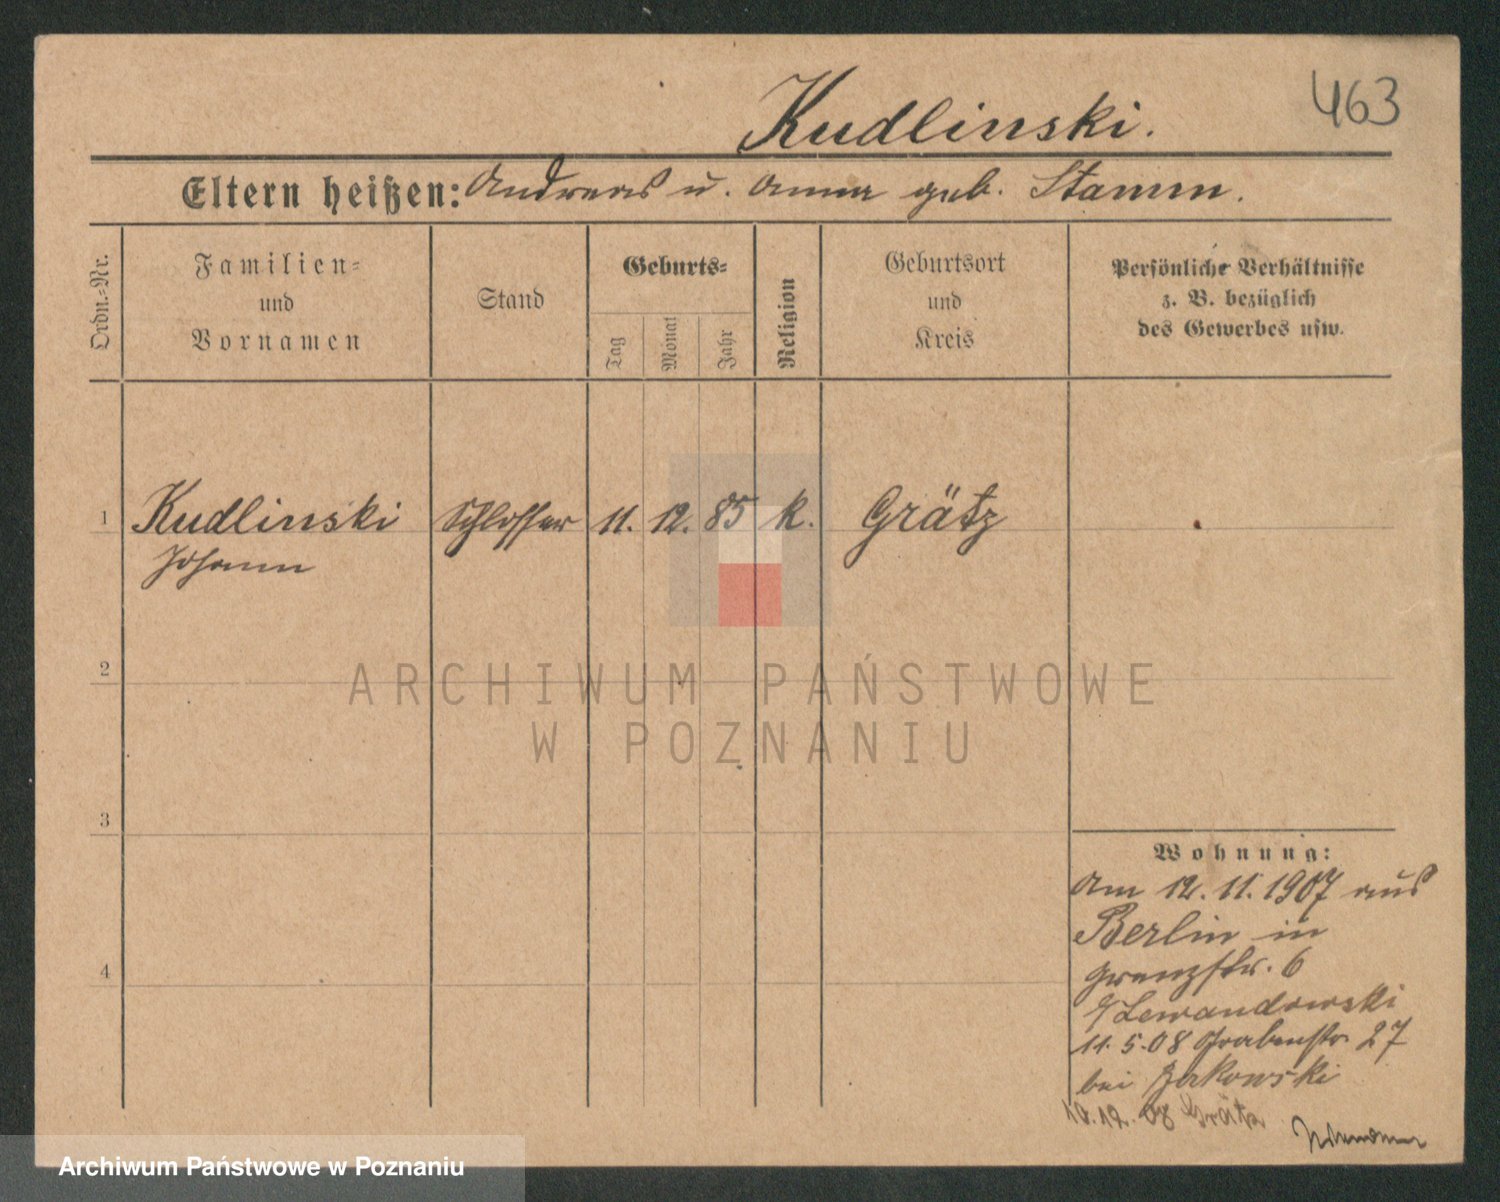 463
Kudlinski.
Eltern heißen: Andreas u. Anna geb. Stamm.
Ordn.-Nr.
Familien-
und
Vornamen
Stand
Geburts-
Tag
Monat
Jahr
Religion
Geburtsort
und
Kreis
Persönliche Verhältnisse
z. B. bezüglich
des Gewerbes usw.
1 Kudlinski Schlosser 11. 12. 85 k. Grätz
Johann
2
3
4
Wohnung:
Am 12.11.1907 aus
Berlin in
Grenzstr. 6
Lewandowski
11.5.08 Grabenstr. 27
bei
12. 08 Grätz
ARCHIWUM PAŃSTWOWE
W POZNANIU
Archiwum Państwowe w Poznaniu